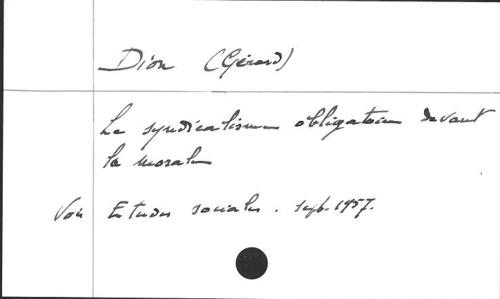 Dion (Gérard)
Le syndicalisme obligatoire devant
la morale
Voir Etudes sociales. sept. 1957.